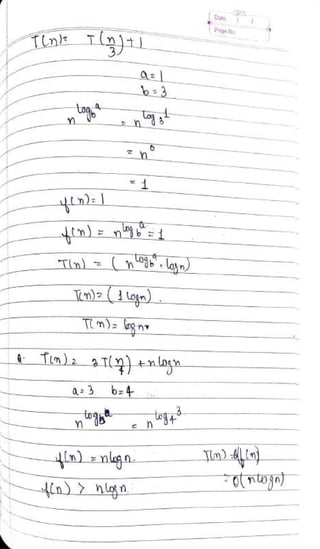 Date: / /
Page No.
T(n) = T(n/3) + 1
a = 1
b = 3
n^log_b^a = n^log_3^1
= n^0
= 1
f(n) = 1
f(n) = n^log_b^a = 1
T(n) = (n^log_b^a . logn)
T(n) = (1 logn).
T(n) = logn
Q. T(n) = 3T(n/4) + nlogn
a = 3 b = 4
n^log_b^a = n^log_4^3
f(n) = nlogn. T(n) = θf(n)
f(n) > nlogn. = θ(nlogn)